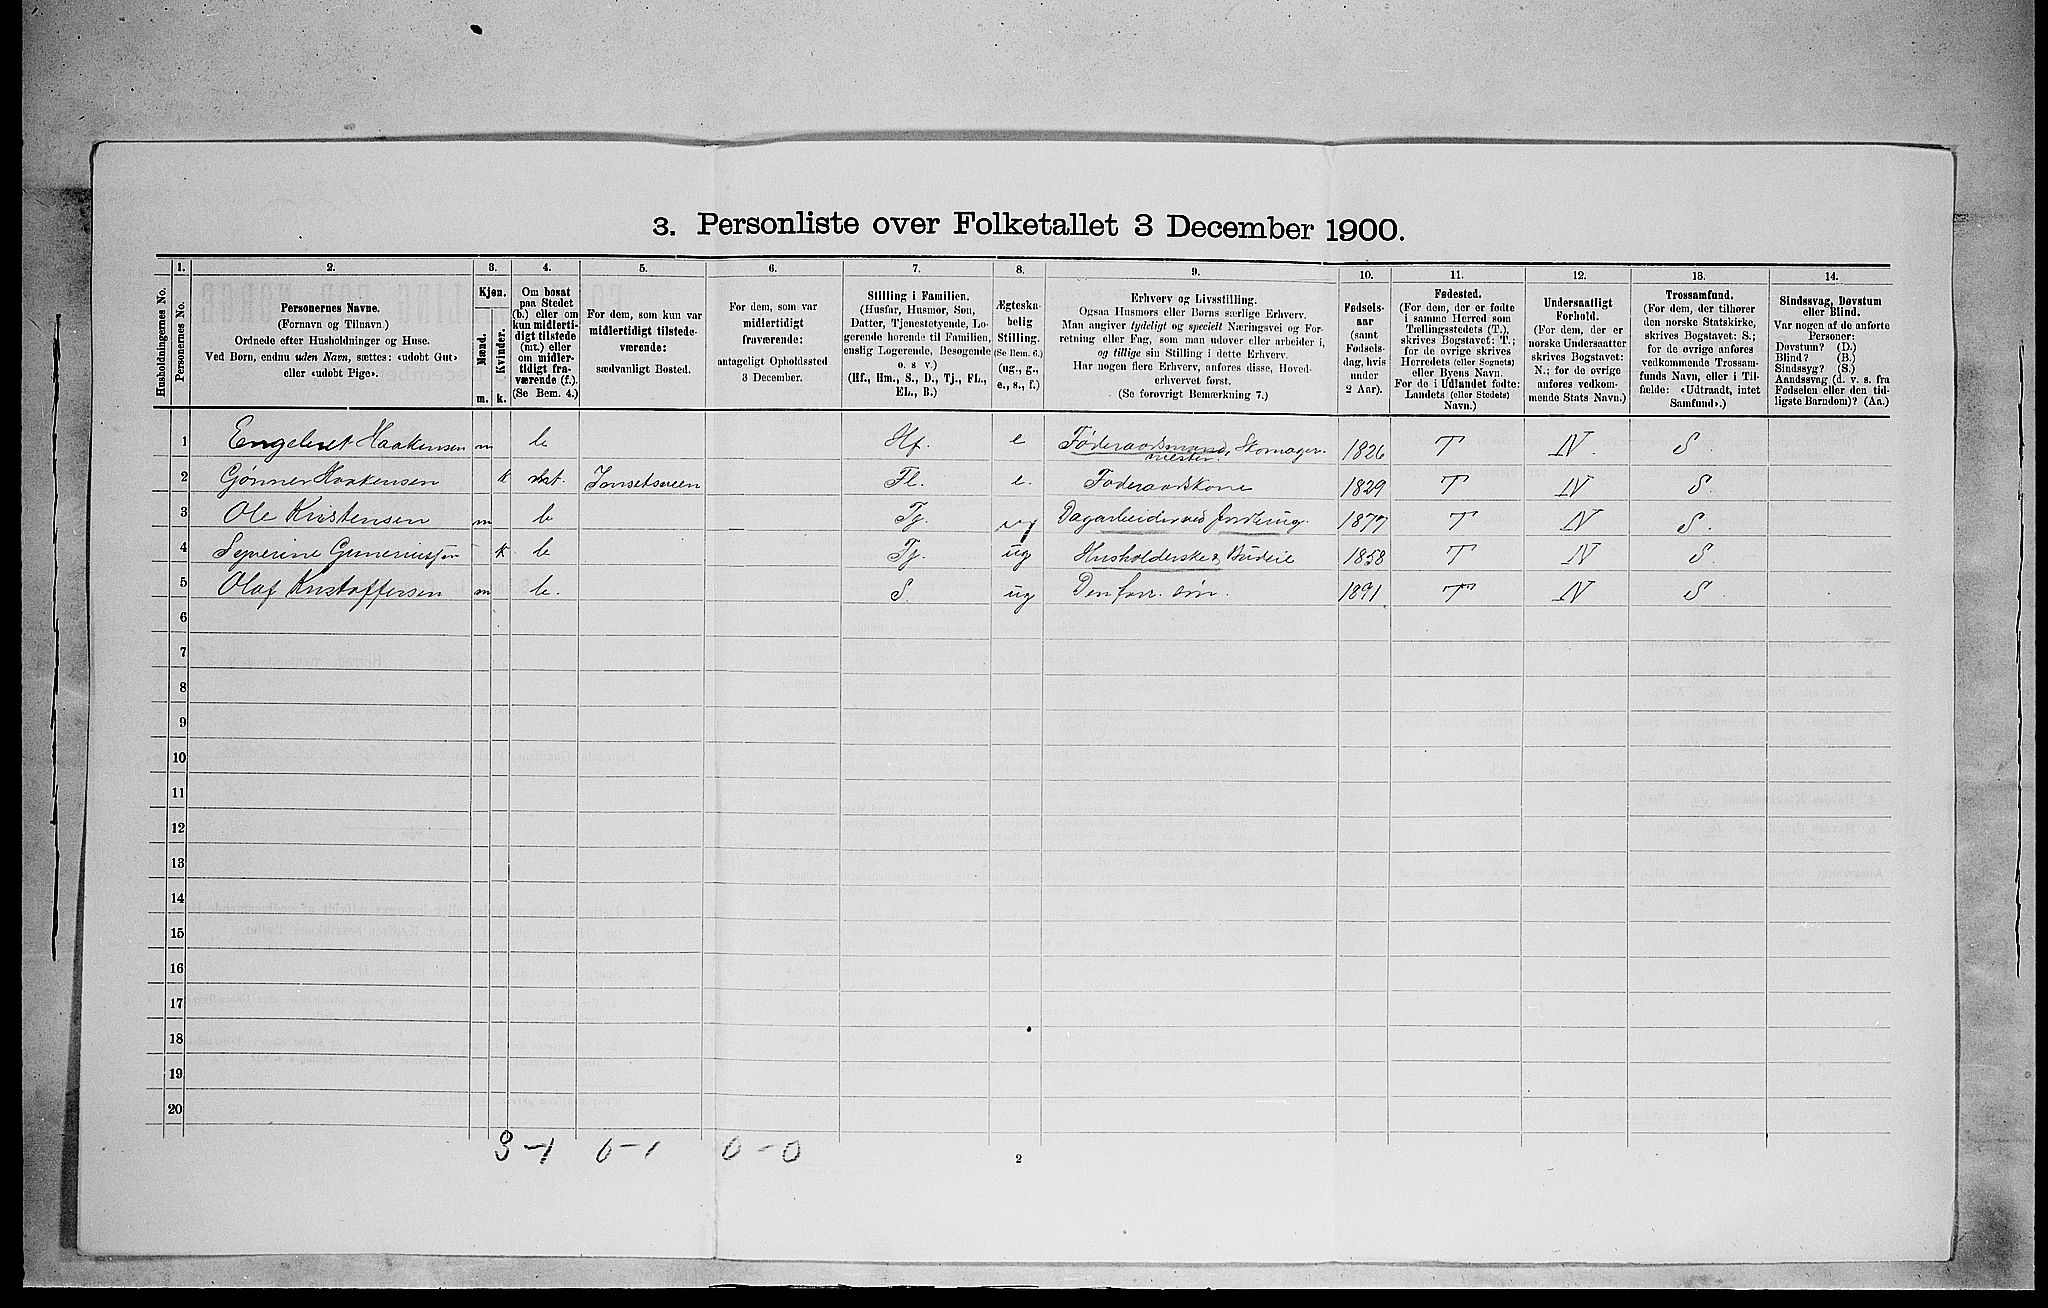 3. Personliste over Folketallet 3 December 1900.
1. 2. 3. 4. 5. 6. 7. 8. 9. 10. 11. 12. 13. 14.
Husholdningernes No.
Personernes No.
Personernes Navne.
(Fornavn og Tilnavn.)
Ordnede efter Husholdninger og Huse.
Ved Børn, endnu uden Navn, sættes: «udøbt Gut»
eller «udøbt Pige».
Kjøn.
Mænd. Kvinder.
m. k.
Om bosat
paa Stedet
(b.) eller om
kun midlerti-
digt tilstede
(mt.) eller
om midler-
tidigt fra-
værende (f.).
(Se Bem. 4.)
For dem, som kun var
midlertidigt tilstede-
værende:
sædvanligt Bosted.
For dem, som var
midlertidigt
fraværende:
antageligt Opholdssted
3 December.
Stilling i Familien.
(Husfar, Husmor, Søn,
Datter, Tjenestetyende, Lo-
gerende hørende til Familien,
enslig Logerende, Besøgende
o. s v.)
(Hf., Hm., S., D., Tj., FL.,
EL., B.)
Ægteska-
belig
Stilling.
(Se Bem. 6.)
(ug., g.,
e., s., f.)
Erhverv og Livsstilling.
Ogsaa Husmors eller Børns særlige Erhverv.
Man angiver tydeligt og specielt Næringsvei og For-
retning eller Fag, som man udøver eller arbeider i,
og tillige sin Stilling i dette Erhverv.
Har nogen flere Erhverv, anføres disse, Hoved-
erhvervet først.
(Se forøvrigt Bemærkning 7.)
Fødsels-
aar
(samt
Fødsels-
dag, hvis
under
2 Aar).
Fødested.
(For dem, der er fødte
i samme Herred som
Tællingsstedets (T.),
skrives Bogstavet: T.;
for de øvrige skrives
Herredets (eller Sognets)
eller Byens Navn.
For de i Udlandet fødte:
Landets (eller Stedets)
Navn.)
Undersaatligt
Forhold.
(For dem, der er
norske Undersaatter
skrives Bogstavet:
N.; for de øvrige
anføres vedkom-
mende Stats Navn.)
Trossamfund.
(For dem, der tilhører
den norske Statskirke,
skrives Bogstavet: S.;
for de øvrige anføres
vedkommende Trossam-
funds Navn, eller i Til-
fælde: «Udtraadt, intet
Samfund».)
Sindssvag, Døvstum
eller Blind.
Var nogen af de anførte
Personer:
Døvstum? (D.)
Blind? (B.)
Sindssyg? (S.)
Aandssvag (d. v. s. fra
Fødselen eller den tid-
ligste Barndom)? (Aa.)
1 Engebret Haakensen m b. Hf. e Føderaadsmand, Skomager- 1826 T N. S.
mester.
2 Gønner Haakensen k mt. Fl. e. Føderaadskone 1829 T N S.
3 Ole Kristensen m b Tj. ug Dagarbeider ved Jordbrug. 1877 T N S.
4 Severine Guneriusen k b. Tj. ug Husholderske & Budeie 1858 T N S
5 Olaf Kristoffersen m b. S. ug Den forr. søn. 1891 T N S.
6
7
8
9
10
11
12
13
14
15
16
17
18
19
20
3-1 0-1 0-0
2